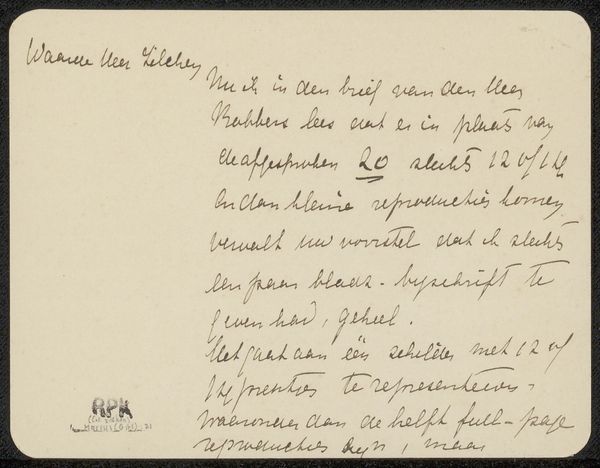 Waarde Heer Zilcken
Nu ik in den brief van den Heer
Robbers lees dat er in plaats van
de afgesproken 20 slechts 12 of 14
en dan kleine reproducties komen
vervalt uw voorstel dat ik slechts
een paar bladz - bijschrift te
geven had, geheel.
Het gaat aan één schilder met 12 of
14 prentjes te representeeren -
waaronder dan de helft full-page
reproducties zijn, maar
RPK